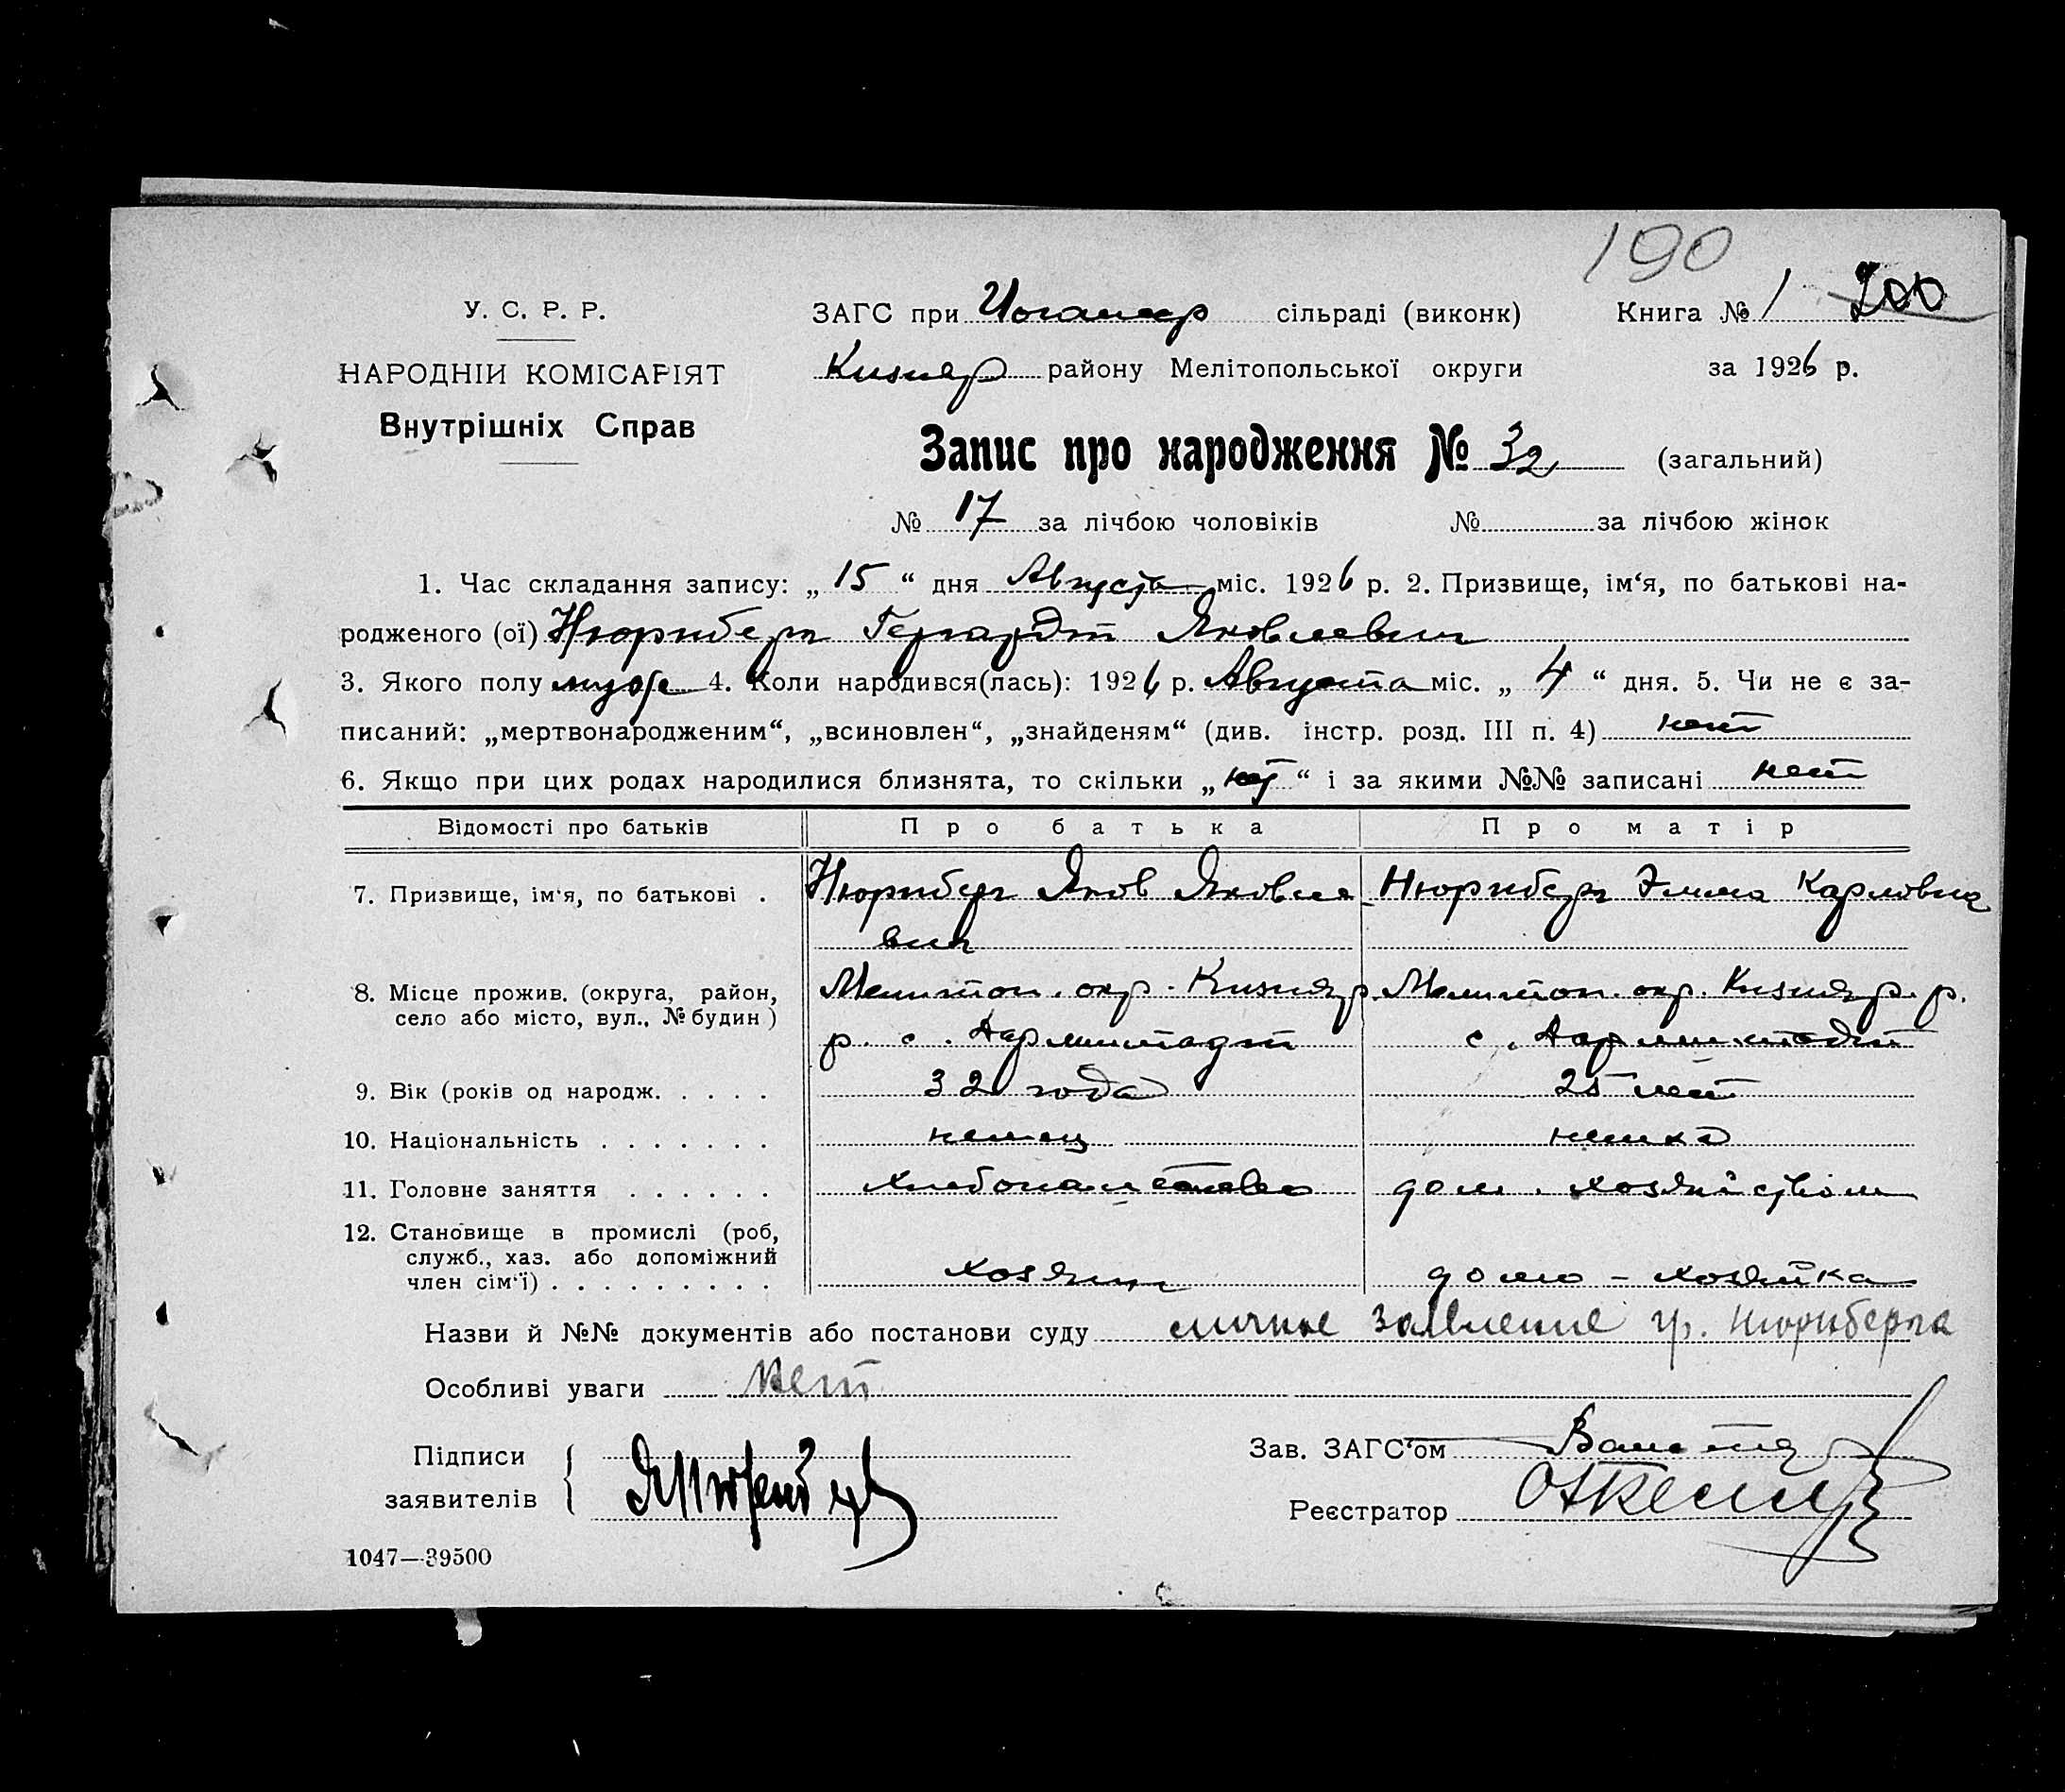 190
У. С. Р. Р.
НАРОДНІЙ КОМІСАРІЯТ
Внутрішніх Справ
ЗАГС при сільраді (виконк) Книга № 1 200
Кизияр району Мелітопольської округи за 1926 р.
Запис про народження № 32 (загальний)
№ 17 за лічбою чоловіків № за лічбою жінок
1. Час складання запису: „ 15 “ дня Августа міс. 1926 р. 2. Призвище, ім‘я, по батькові на-
родженого (ої) Нюрнберг Гергардт Яковлевич
3. Якого полу муж 4. Коли народився(лась): 1926 р. Августа міс. „ 4 “ дня. 5. Чи не є за-
писаний: „мертвонародженим“, „всиновлен“, „знайденям“ (див. інстр. розд. III п. 4) нет
6. Якщо при цих родах народилися близнята, то скільки „ нет “ і за якими №№ записані нет
Відомості про батьків Про батька Про матір
7. Призвище, ім‘я, по батькові . Нюрнберг Яков Яковле- Нюрнберг Эмма Карловна
вич
8. Місце прожив. (округа, район, село або місто, вул., № будин) Мелитоп. окр. Кизияр. Мелитоп. окр. Кизияр. р.
р. с. Дармштадт с. Дармштадт
9. Вік (років од народж. . . . . 32 года 25 лет
10. Національність . . . . . . . немец немка
11. Головне заняття . . . . . . дом. хозяйством
12. Становище в промислі (роб,
служб., хаз. або допоміжний
член сім‘ї) . . . . . . . . . хозяин домо-хозяйка
Назви й №№ документів або постанови суду личное заявление гр. Нюрнберга
Особливі уваги нет
Підписи
заявителів
Зав. ЗАГС‘ом
Реєстратор
1047—39500